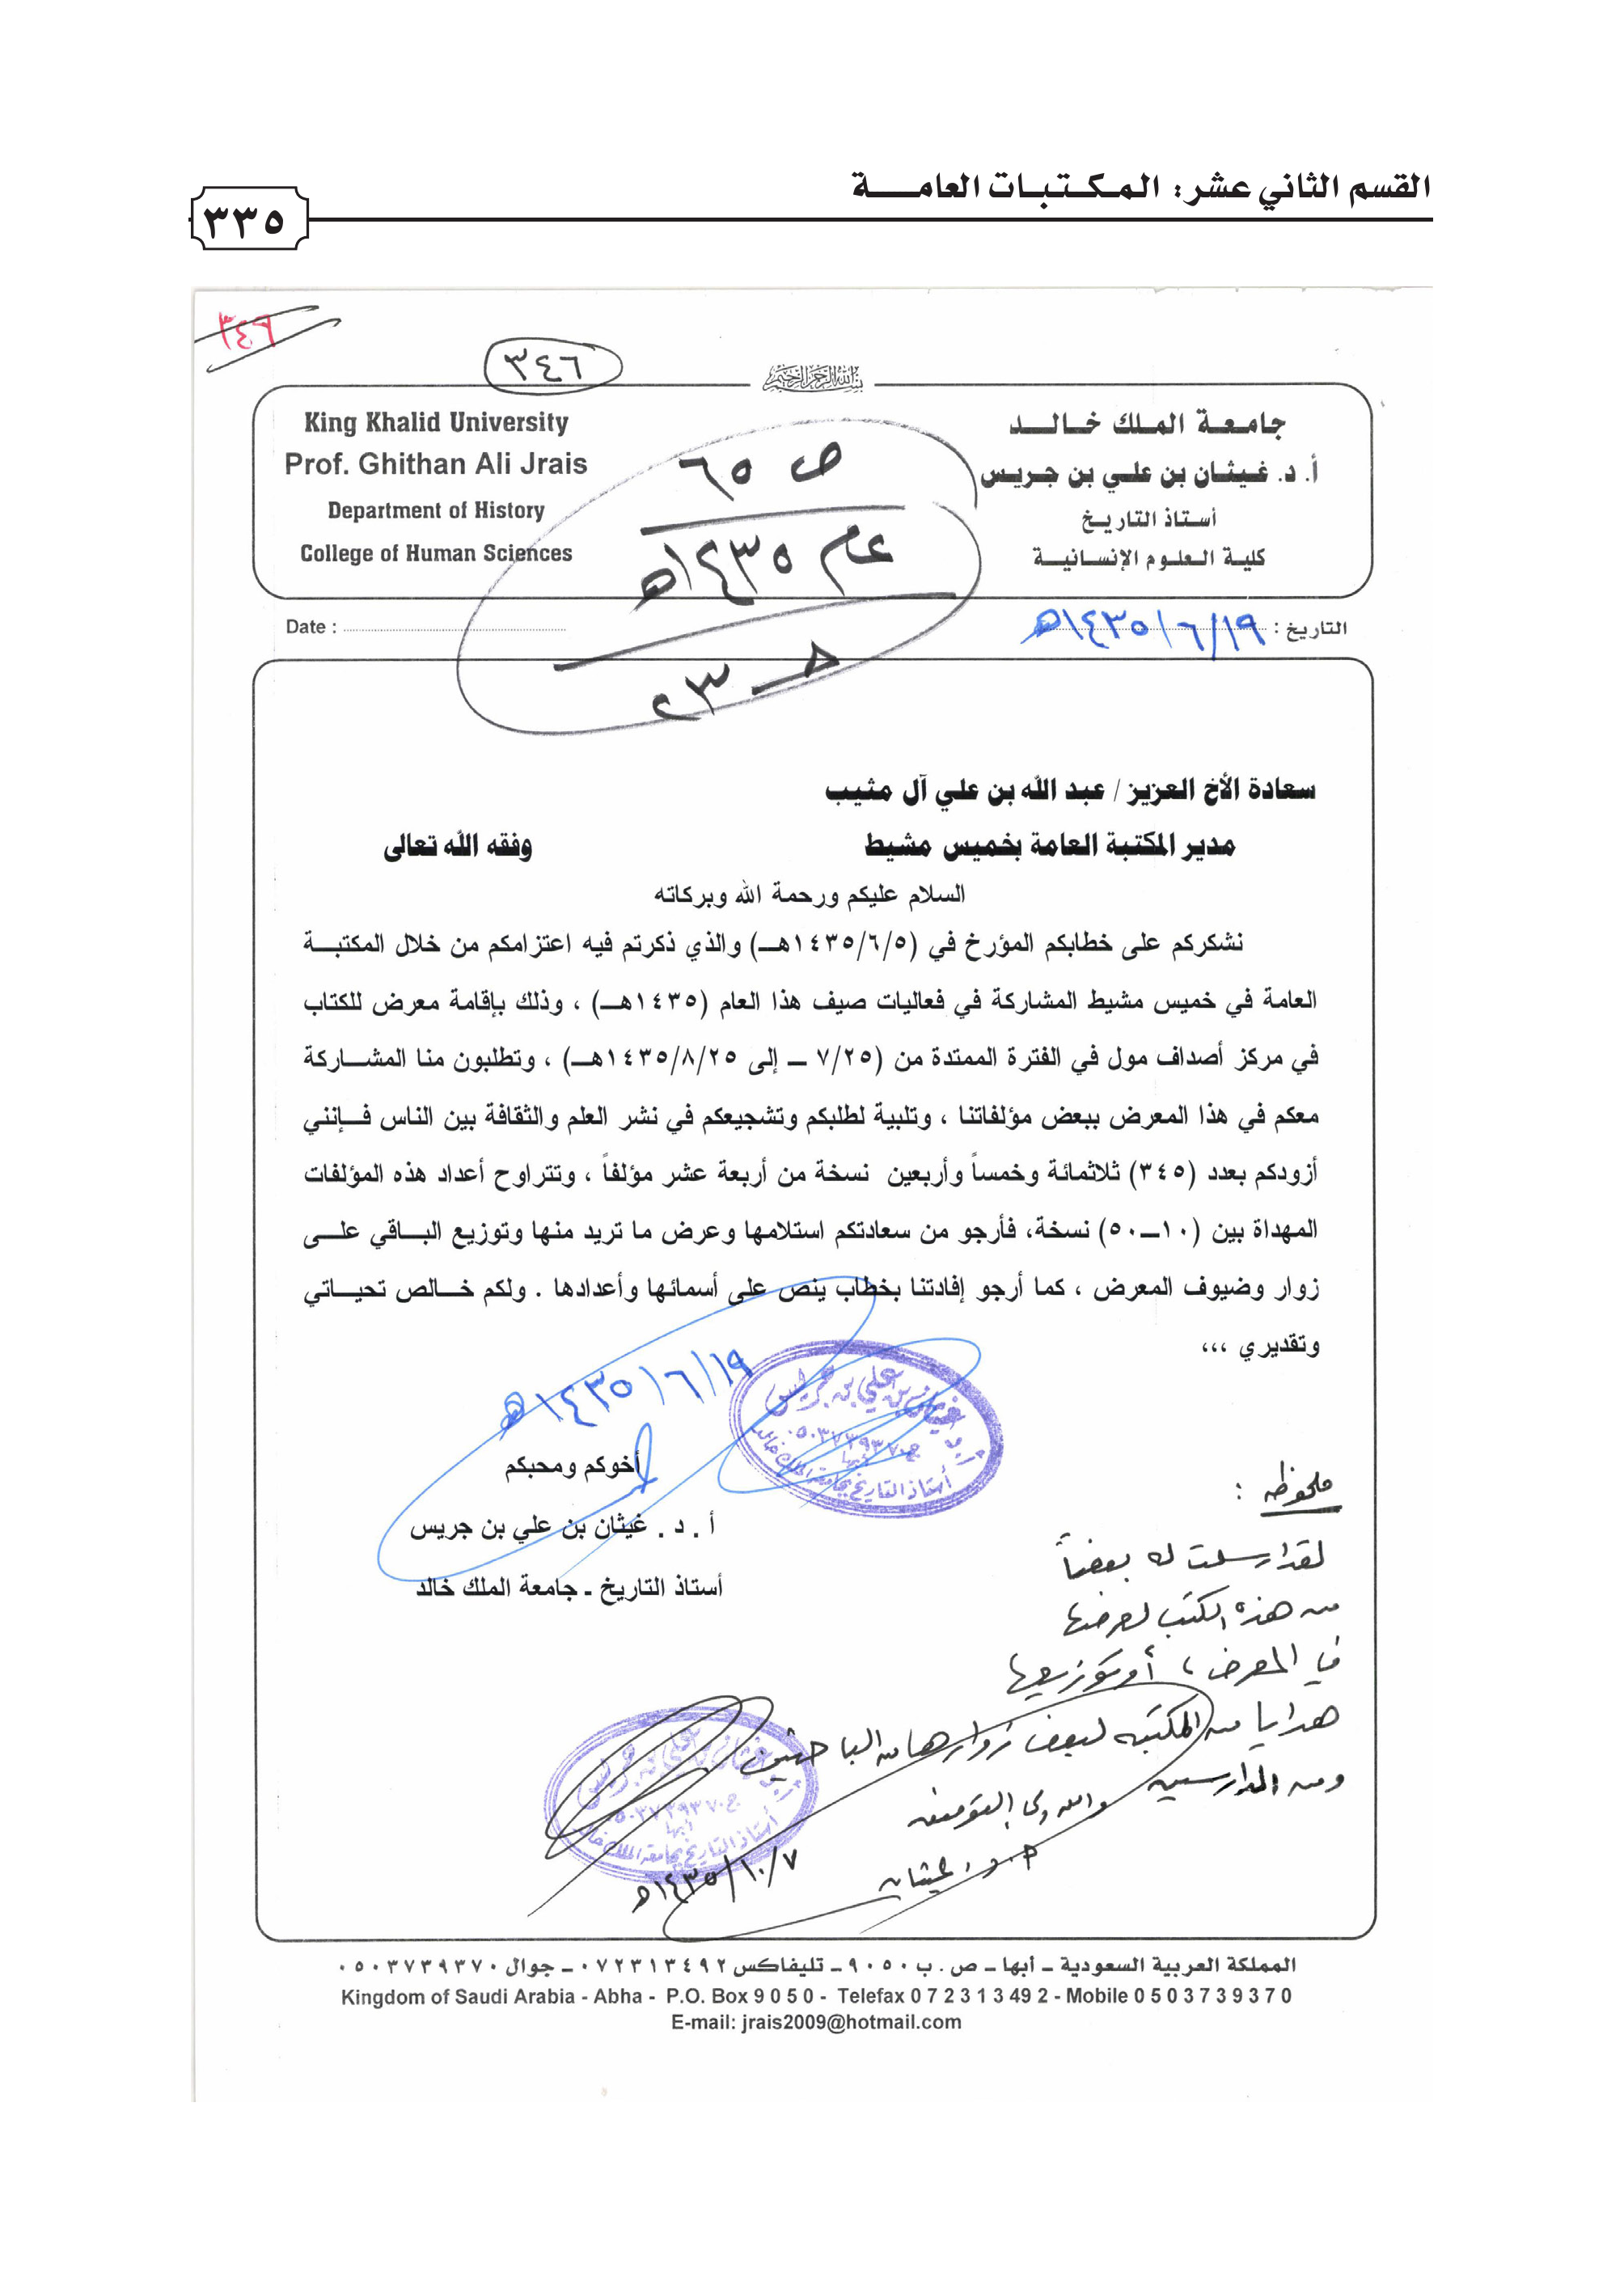 القسم الثاني عشر: المكتبات العامة
٣٣٥
٣٤٦
٣٤٦
بسم الله الرحمن الرحيم
جامعة الملك خالد
أ. د. غيثان بن علي بن جريس
أستاذ التاريخ
كلية العلوم الإنسانية
King Khalid University
Prof. Ghithan Ali Jrais
Department of History
College of Human Sciences
ص ٦٥
عام ١٤٣٥هـ
التاريخ : ١٤٣٥/٦/١٩هـ
Date :
سعادة الأخ العزيز/ عبد الله بن علي آل مثيب
مدير المكتبة العامة بخميس مشيط وفقه الله تعالى
السلام عليكم ورحمة الله وبركاته
نشكركم على خطابكم المؤرخ في (١٤٣٥/٦/٥هـ) والذي ذكرتم فيه اعتزامكم من خلال المكتبة
العامة في خميس مشيط المشاركة في فعاليات صيف هذا العام (١٤٣٥هـ) ، وذلك بإقامة معرض للكتاب
في مركز أصداف مول في الفترة الممتدة من (٧/٢٥ – إلى ١٤٣٥/٨/٢٥هـ) ، وتطلبون منا المشاركة
معكم في هذا المعرض ببعض مؤلفاتنا ، وتلبية لطلبكم وتشجيعكم في نشر العلم والثقافة بين الناس فإنني
أزودكم بعدد (٣٤٥) ثلاثمائة وخمساً وأربعين نسخة من أربعة عشر مؤلفاً ، وتتراوح أعداد هذه المؤلفات
المهداة بين (١٠–٥٠) نسخة، فأرجو من سعادتكم استلامها وعرض ما تريد منها وتوزيع الباقي على
زوار وضيوف المعرض ، كما أرجو إفادتنا بخطاب ينص على أسمائها وأعدادها . ولكم خالص تحياتي
وتقديري ،،،
١٤٣٥/٦/١٩هـ
أ.د غيثان بن علي بن جريس
ج ٠٥٠٣٧٣٩٣٧٠
أبها
أستاذ التاريخ بجامعة الملك خالد
أخوكم ومحبكم
أ . د . غيثان بن علي بن جريس
أستاذ التاريخ ـ جامعة الملك خالد
ملحوظة :
لقد ارسلت له بعضاً
من هذه الكتب لعرضها
في المعرض ، أو توزيعها
هدايا من المكتبة لبعض زوارها من الباحثين
ومن الدارسين والله ولي التوفيق
أ.د غيثان بن علي بن جريس
ج ٠٥٠٣٧٣٩٣٧٠
أبها
أستاذ التاريخ بجامعة الملك خالد
١٤٣٥/١٠/٧هـ
المملكة العربية السعودية – أبها – ص . ب ٩٠٥٠ – تليفاكس ٠٧٢٣١٣٤٩٢ – جوال ٠٥٠٣٧٣٩٣٧٠
Kingdom of Saudi Arabia - Abha - P.O. Box 9 0 5 0 - Telefax 0 7 2 3 1 3 49 2 - Mobile 0 5 0 3 7 3 9 3 7 0
E-mail: jrais2009@hotmail.com